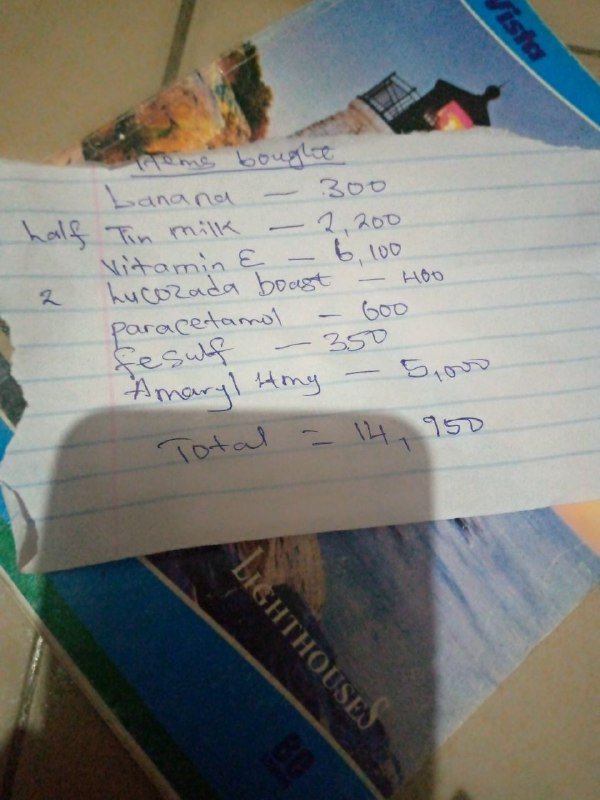 Vista
Items bought
banana — 300
half Tin milk — 2,200
Vitamin E — 6,100
2 Lucozada boast — 400
paracetamol — 600
fesulf — 350
Amaryl 4mg — 5,000
Total = 14,950
LIGHTHOUSES